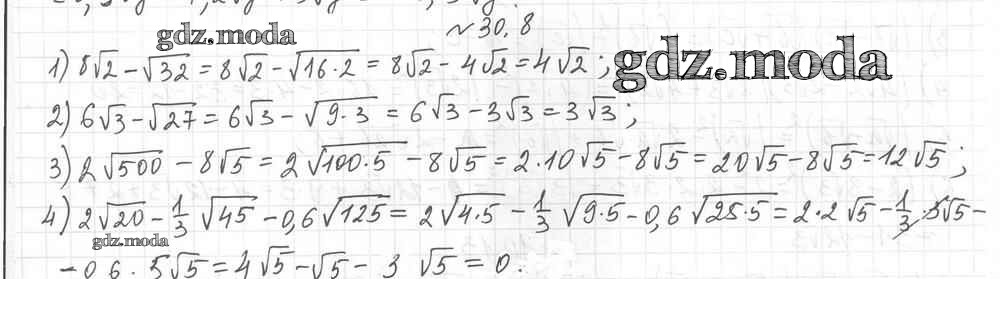 № 30.8
gdz.moda
1) 8√2 - √32 = 8√2 - √16·2 = 8√2 - 4√2 = 4√2 ;
gdz.moda
2) 6√3 - √27 = 6√3 - √9·3 = 6√3 - 3√3 = 3√3 ;
3) 2√500 - 8√5 = 2√100·5 - 8√5 = 2·10√5 - 8√5 = 20√5 - 8√5 = 12√5 ;
4) 2√20 - 1/3 √45 - 0,6√125 = 2√4·5 - 1/3 √9·5 - 0,6 √25·5 = 2·2√5 - 1/3 · 3√5 -
gdz.moda
- 0 6 · 5√5 = 4√5 - √5 - 3 √5 = 0.